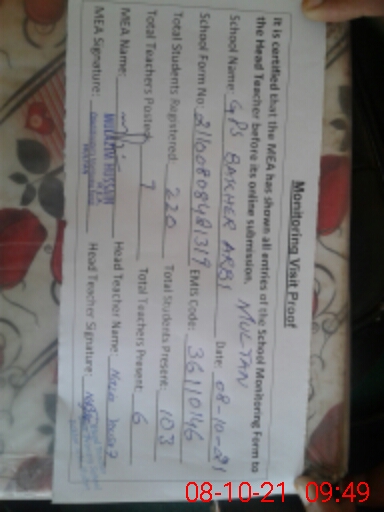 Monitoring Visit Proof
It is certified that the MEA has shown all entries of the School Monitoring Form to
the Head Teacher before its online submission. MULTAN
School Name: GPS BAKHER ARBI Date: 08-10-21
School Form No: EMIS Code: 36110146
Total Students Registered: 220 Total Students Present: 103
Total Teachers Posted: 7 Total Teachers Present: 6
MEA Name: Head Teacher Name:
MEA Signature: Head Teacher Signature:
08-10-21 09:49